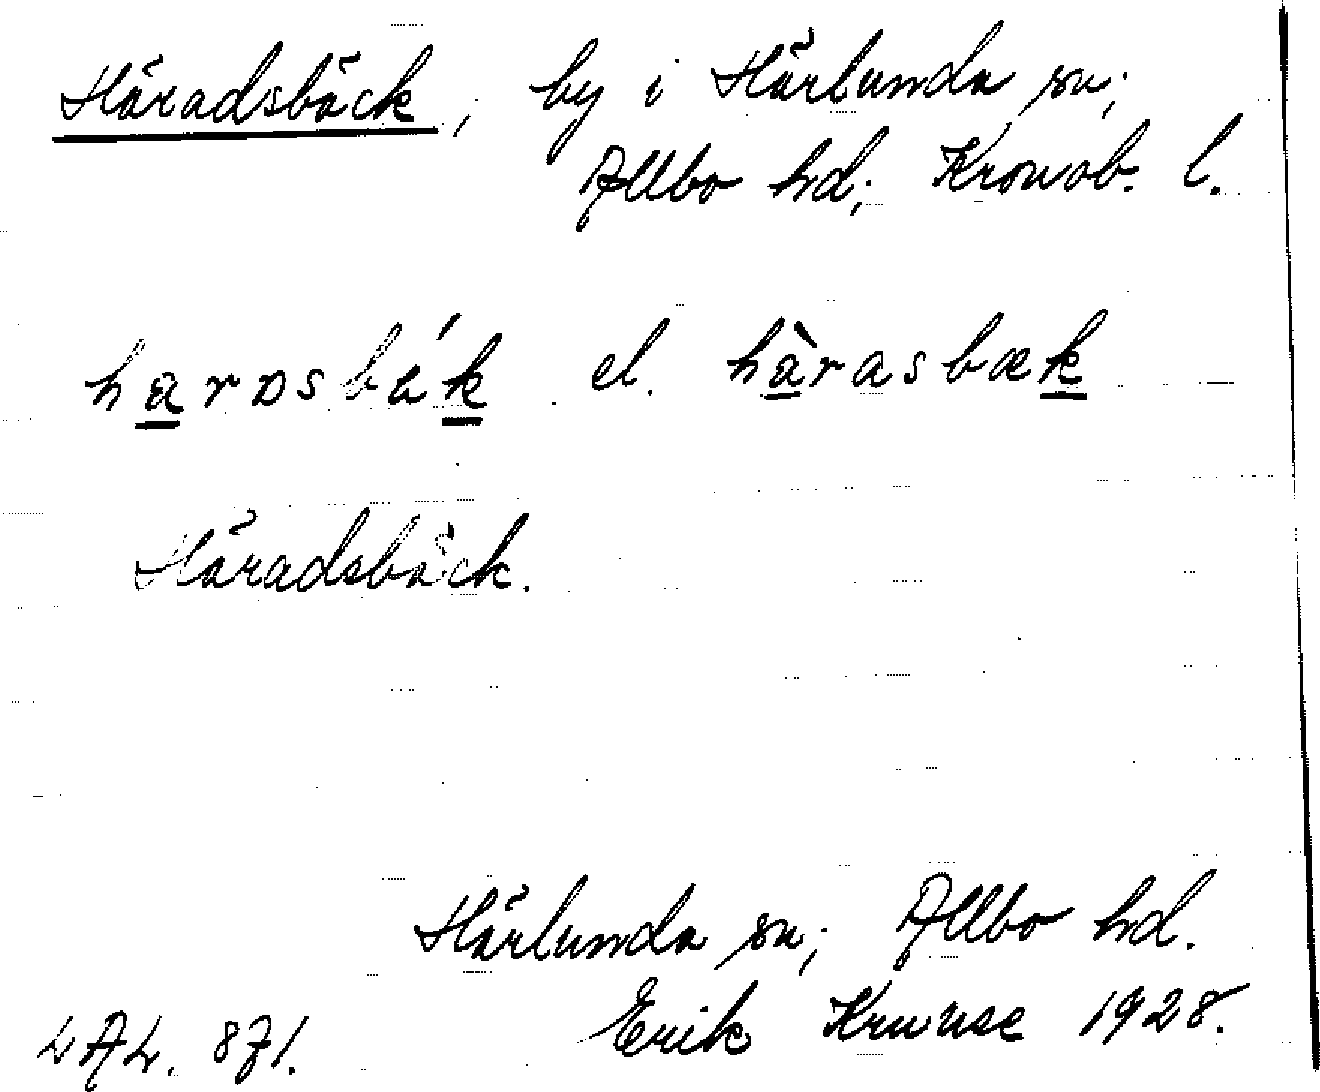 Häradsbäck, by i Härlunda sn;
Allbo hd; Kronob. l.
el. hàrasbæk
Häradsbäck.
Härlunda sn; Allbo hd.
Erik Kruuse 1928.
LAL. 871.